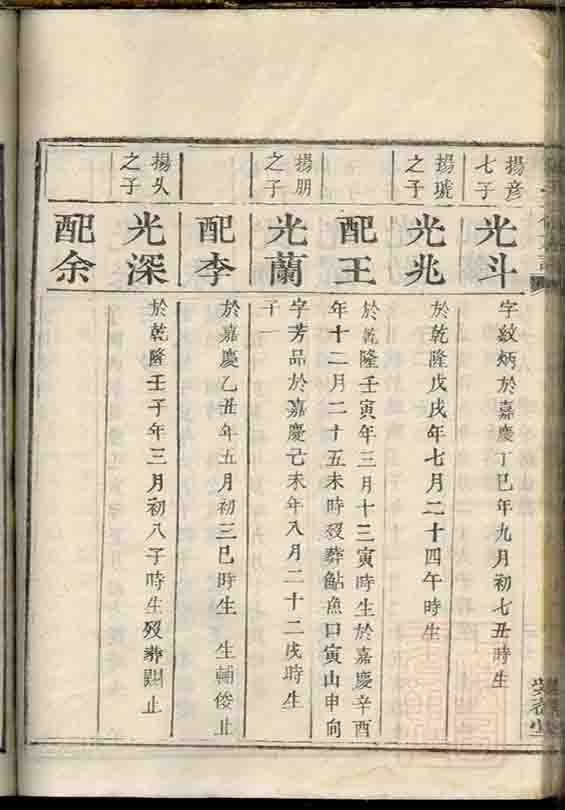 揚彦七子
光斗
字紋炳於嘉慶丁巳年九月初七丑時生
揚琥之子
光兆
於乾隆戊戌年七月二十四午時生
配王
於乾隆壬寅年三月十三寅時生於嘉慶辛酉
年十二月二十五未時殁葬鮎魚口寅山申向
揚朋之子
光蘭
字芳品於嘉慶己未年八月二十二戌時生
子一
配李
於嘉慶乙丑年五月初三巳時生 生輔俊止
揚久之子
光深
於乾隆壬子年三月初八子時生殁葬闕止
配余